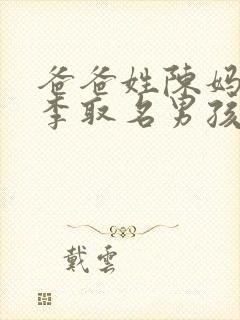 爸爸姓陈妈
李取名男孩
戴雲